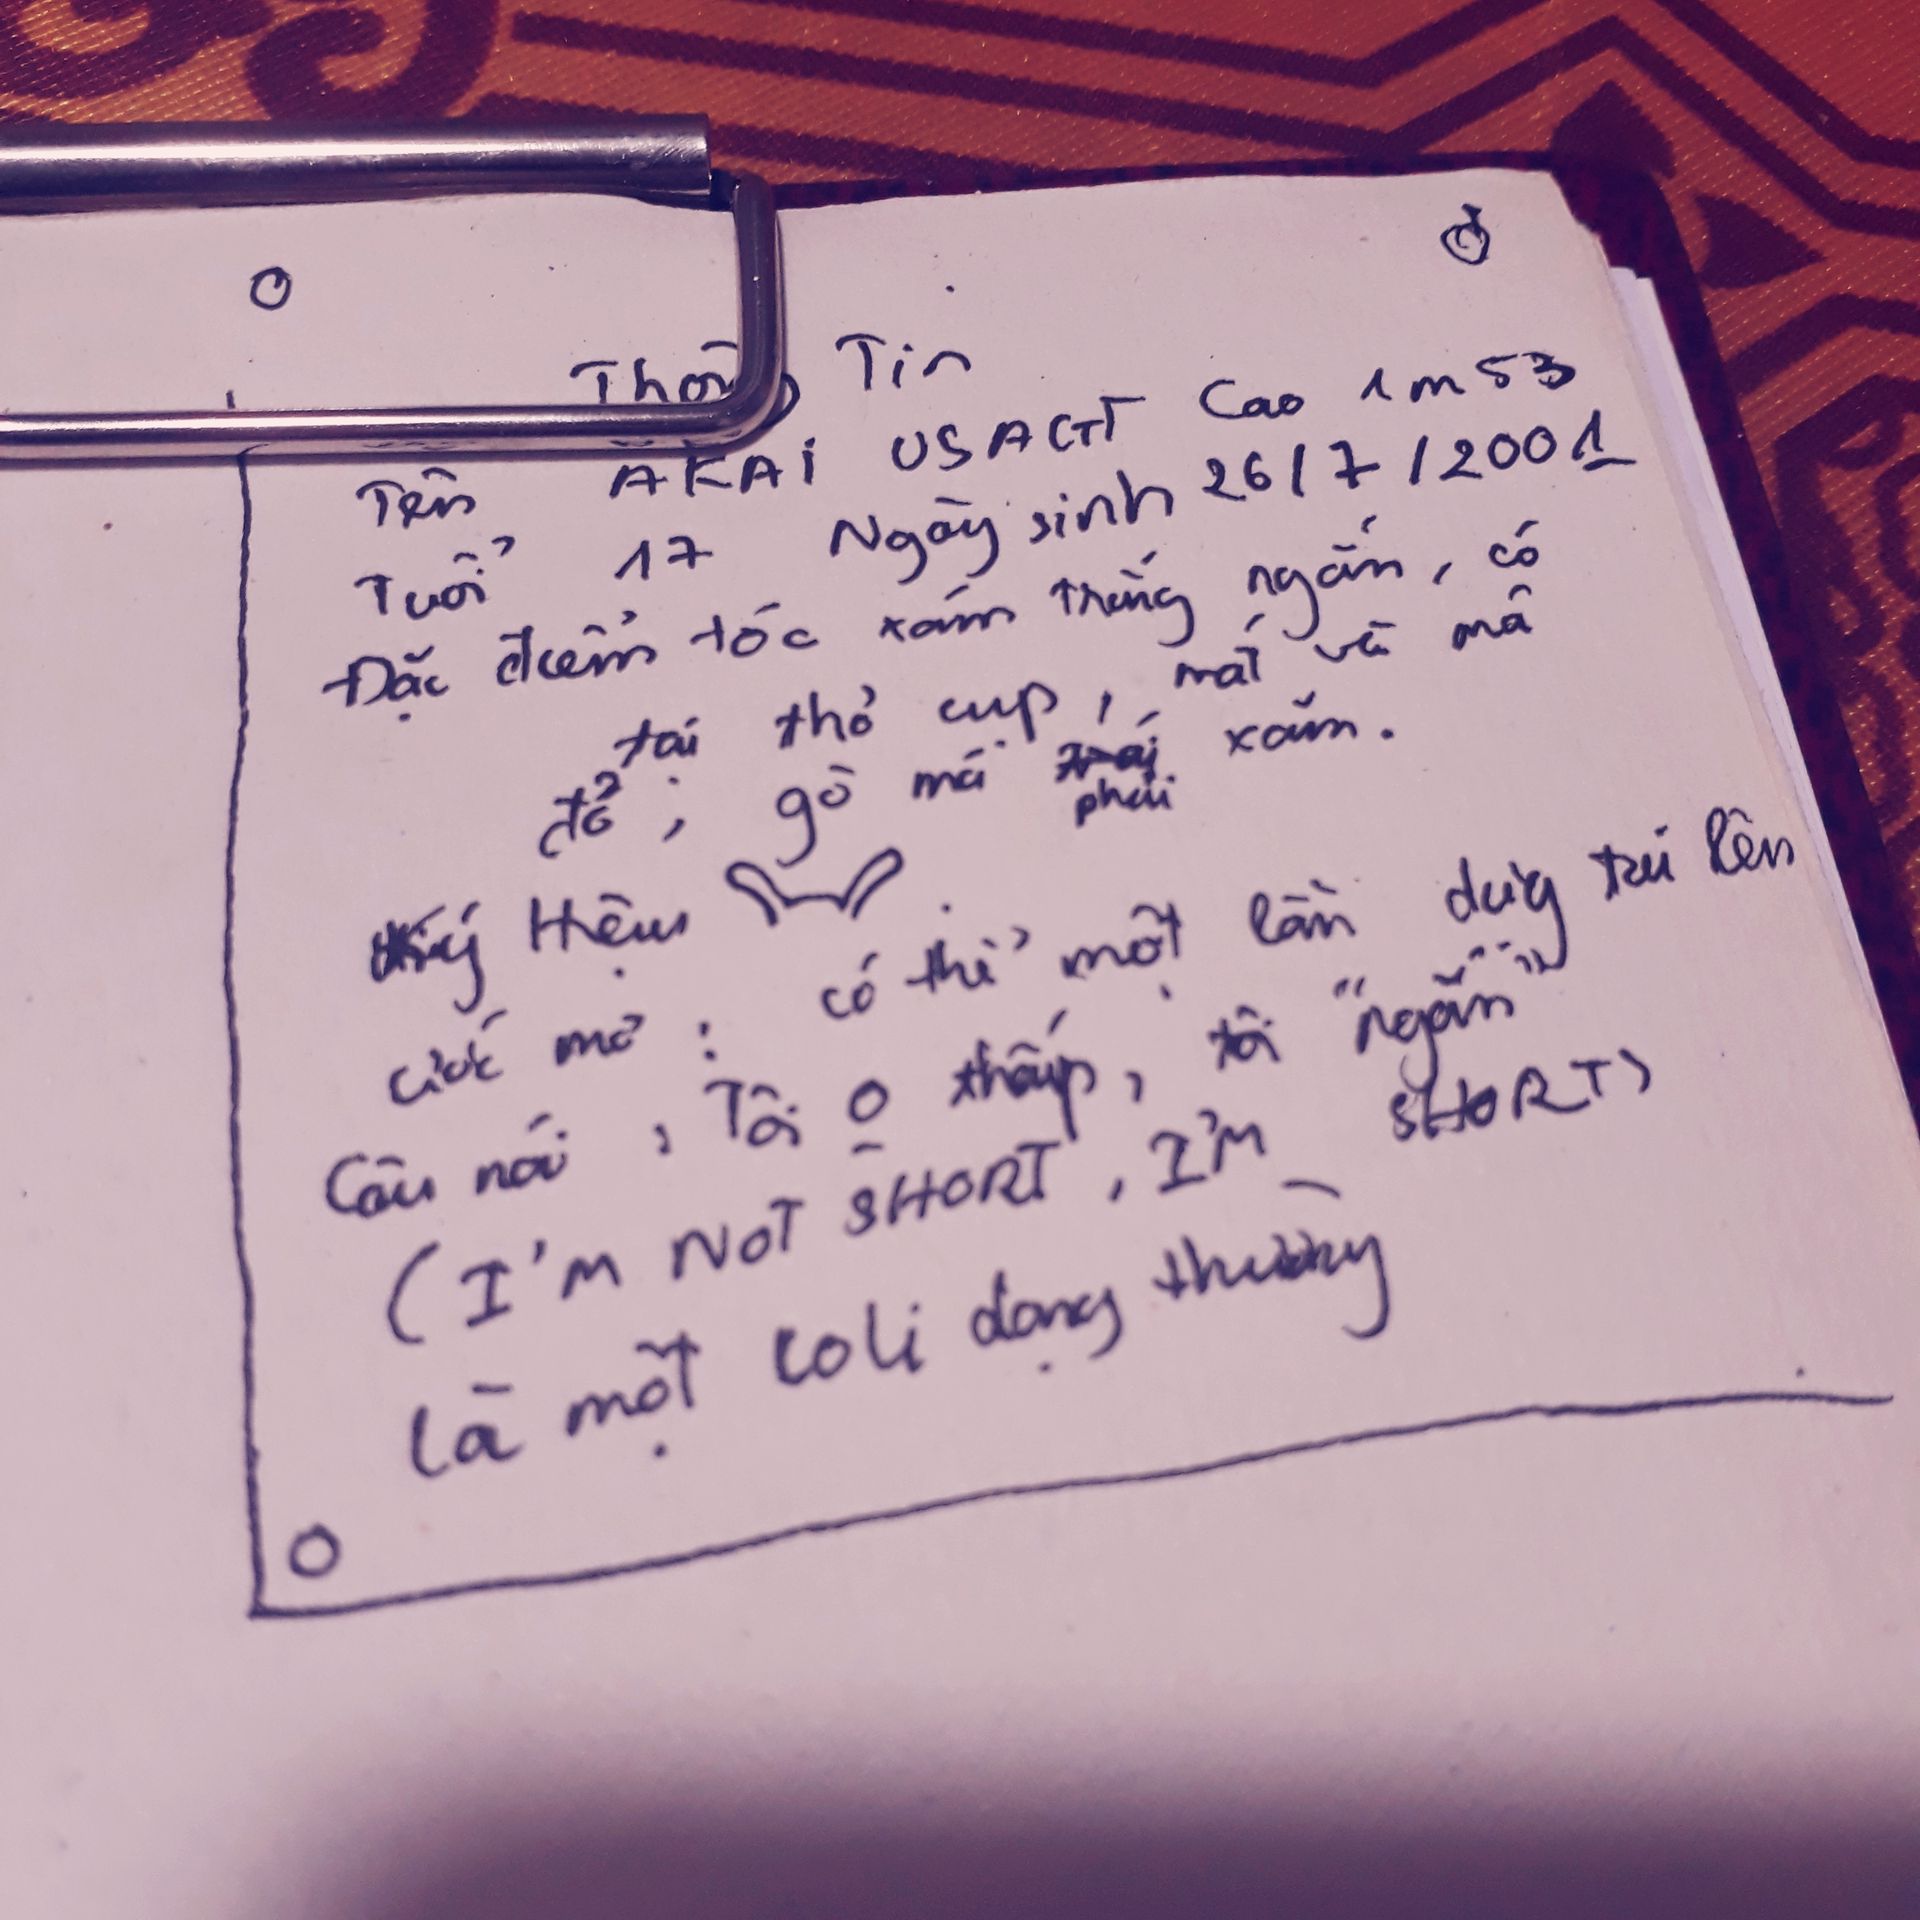 Thông Tin
Tên AKAI USAGI Cao 1m53
Tuổi 17 Ngày sinh 26/7/2001
Đặc điểm tóc xám trắng ngắn, có
tai thỏ cụp, mắt và mã
đỏ, gò má phải xăm.
ký Hiệu
ước mơ: có thể một lần dựng tai lên
Câu nói: Tôi o thấp, tôi "ngắn"
(I'M NOT SHORT, I'M SHORT)
là một loli dạng thường